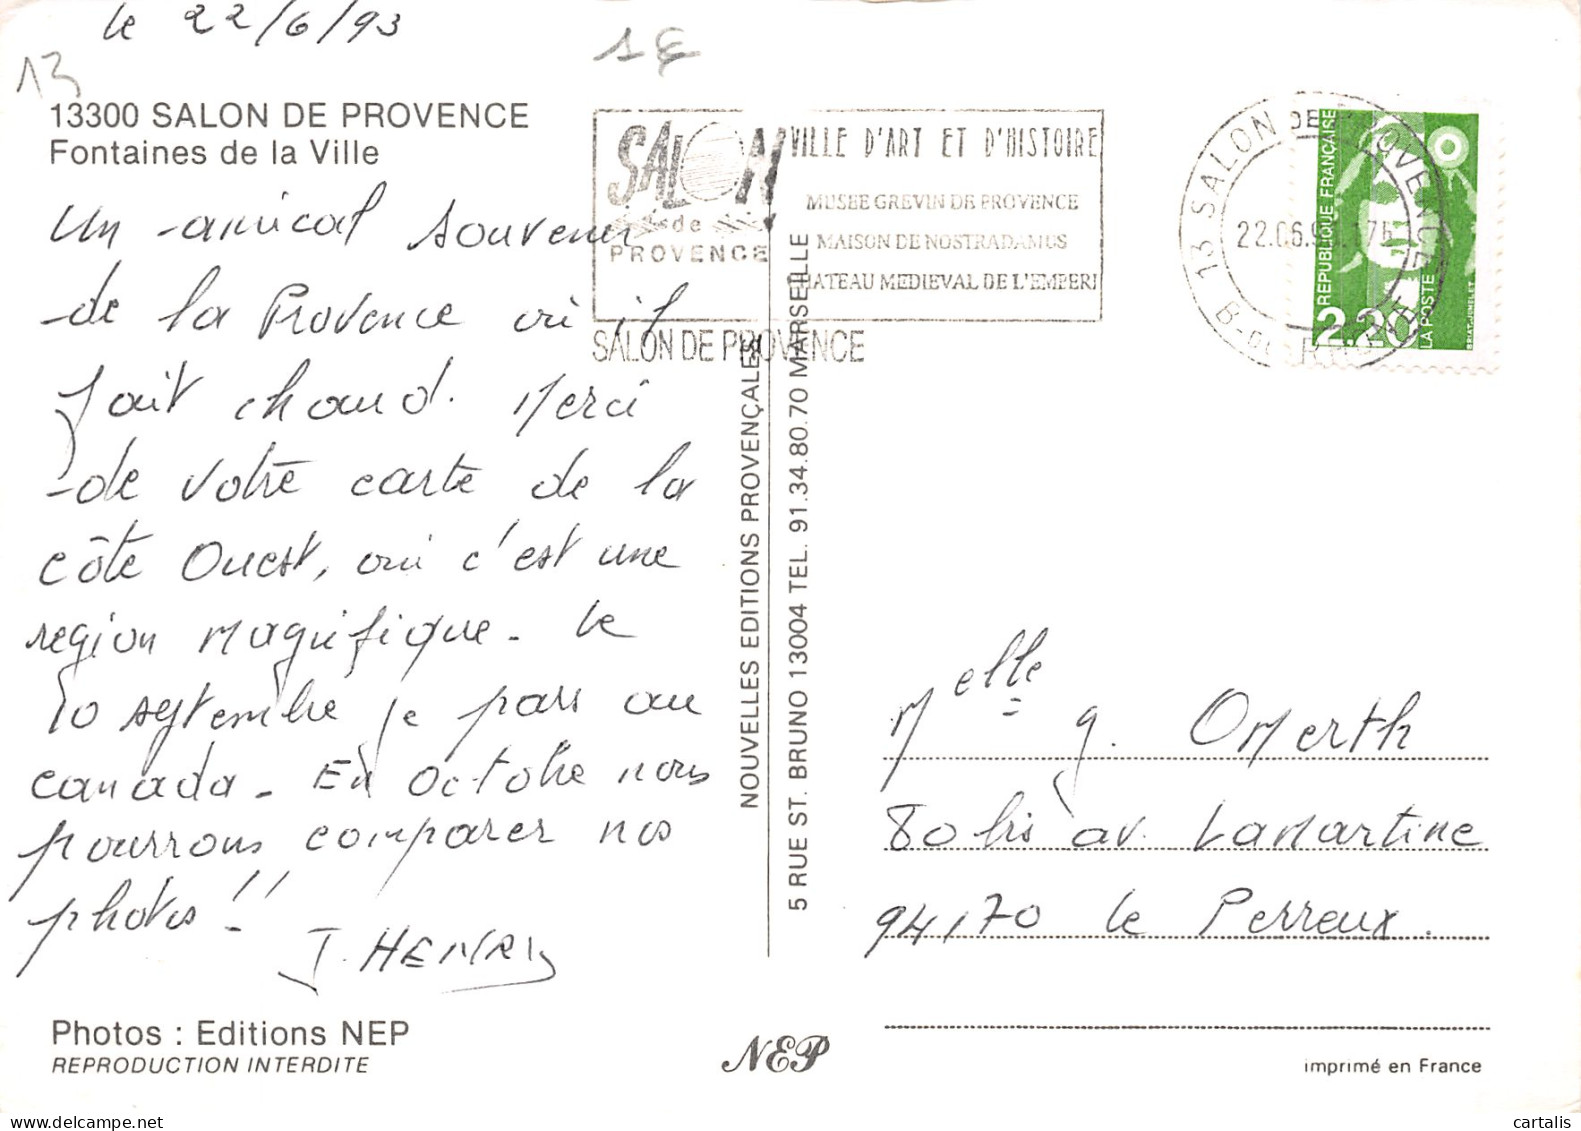 le 22/6/93
13
1€
13300 SALON DE PROVENCE
Fontaines de la Ville
Un amical souvenir
de la Provence où il
fait chaud. Merci
de votre carte de la
côte Ouest, oui c'est une
region magnifique. Le
10 septembre je pars au
Canada. En Octobre nous
pourrons comparer nos
photos !!
J. HENRY
Photos : Editions NEP
REPRODUCTION INTERDITE
SALON
de
PROVENCE
VILLE D'ART ET D'HISTOIRE
MUSEE GREVIN DE PROVENCE
MAISON DE NOSTRADAMUS
CHATEAU MEDIEVAL DE L'EMPERI
SALON DE PROVENCE
13 SALON DE PROVENCE
B-DU RHONE
REPUBLIQUE FRANÇAISE
2.20
LA POSTE
NOUVELLES EDITIONS PROVENÇALES
5 RUE ST. BRUNO 13004 TEL. 91.34.80.70 MARSEILLE
Melle g. OMerth
80 bis av. Lamartine
94170 le Perreux.
NEP
imprimé en France
cartalis